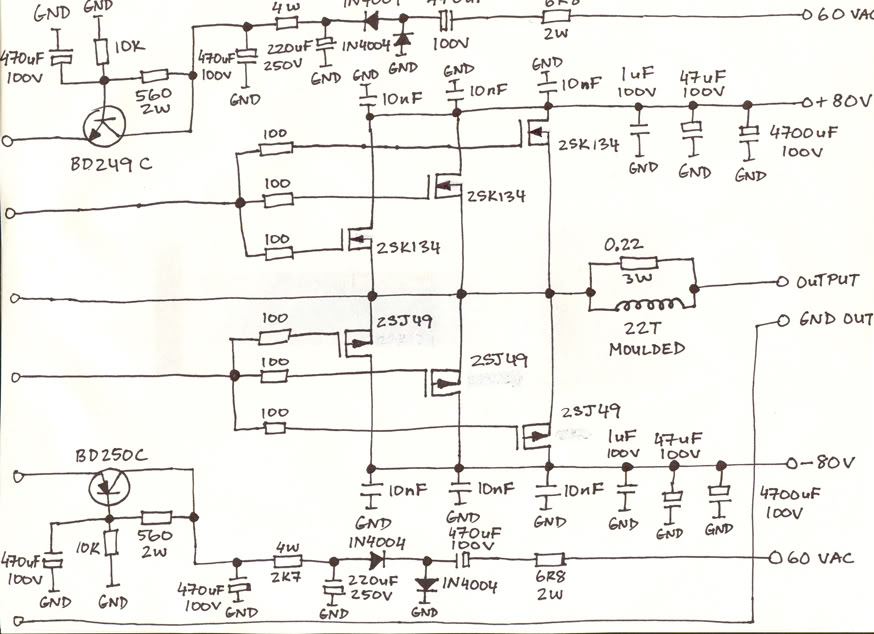 GND GND
4W
1N4001
470uF
6R8
60 VAC
470uF
100V
10K
470uF
100V
220uF
250V
1N4004
GND
100V
2W
560
2W
GND
GND
GND
GND
GND
10nF
10nF
10nF
1uF
100V
47uF
100V
+80V
4700uF
100V
GND
GND
GND
BD249C
100
2SK134
100
2SK134
100
2SK134
0.22
3W
OUTPUT
22T
MOULDED
GND OUT
100
2SJ49
100
2SJ49
100
2SJ49
BD250C
1uF
100V
47uF
100V
-80V
4700uF
100V
10nF
10nF
10nF
GND
GND
GND
GND
GND
GND
560
2W
10K
470uF
100V
GND
GND
4W
2K7
1N4004
470uF
100V
60 VAC
470uF
100V
220uF
250V
1N4004
6R8
2W
GND
GND
GND